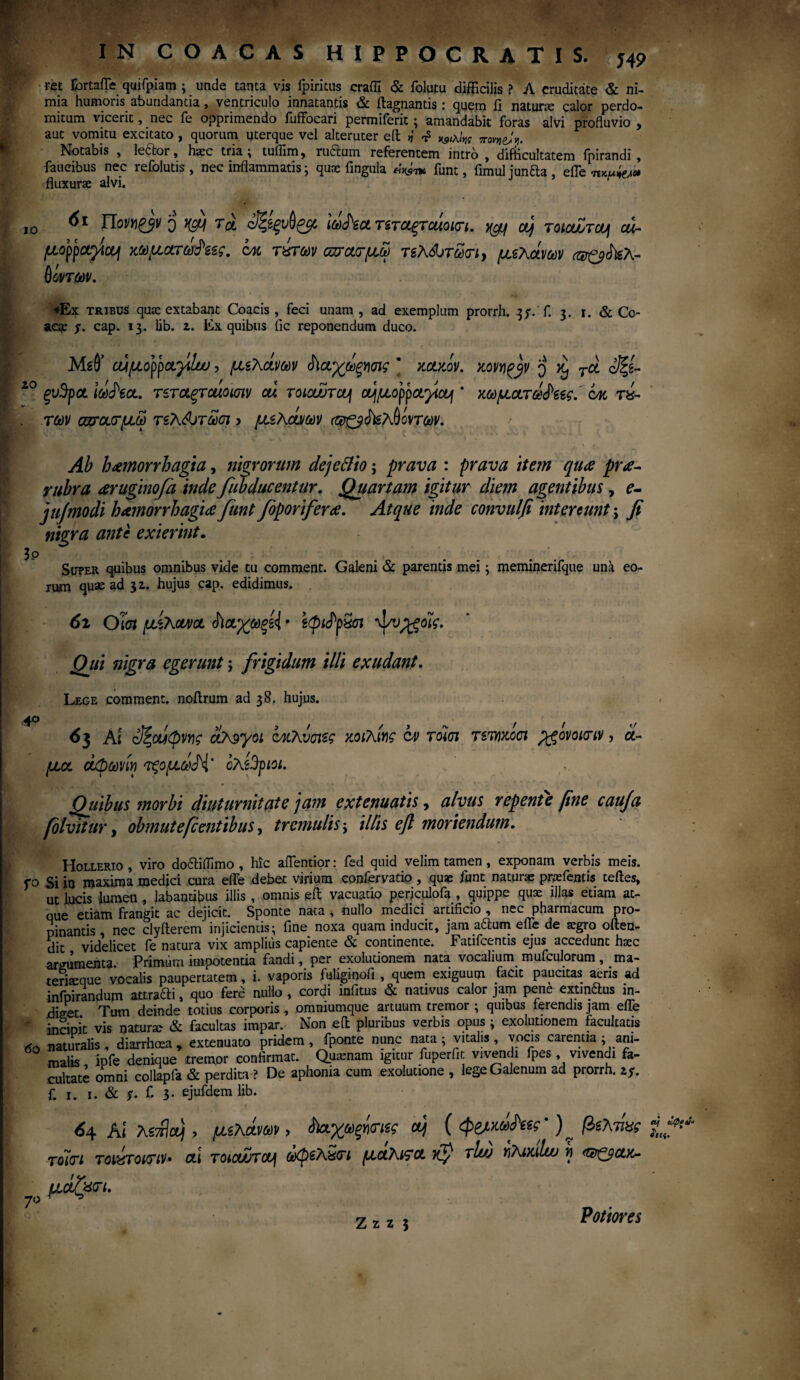 IN COACAS HIPPOCRATIS. 549
ret fortasse quispiam; unde tanta vis spiritus crassi & solutu difficilis? A cruditate & ni-
mia humoris abundantia, ventriculo innatantis & stagnantis: quem si naturæ calor perdo-
mitum vicerit, nec se opprimendo suffocari permiserit; amandabit foras alvi profluvio,
aut vomitu excitato, quorum uterque vel alteruter est
Notabis, lector, hæc tria; tussim, ructum referentem intrò, difficultatem spirandi,
faucibus nec resolutis, nec inflammatis; quæ singula sunt, simul juncta, esse
fluxuræ alvi.
10 61 Πονηρὸν ὃ καὶ τὰ ἐξέρυθρα ἰώδεα τεταρταίοισι. καὶ αἱ τοιαῦται αἱ-
μοῤῥαγίαι κωματώδεες. ἐκ τούτων σπασμῷ τελευτῶσι, μελάνων προδιελ-
θόντων.
*Ex TRIBUS quæ extabant Coacis, feci unam, ad exemplum prorrh. 35. f. 3. 1. & Co-
acæ 5. cap. 13. lib. 2. Ex quibus sic reponendum duco.
Μεθ’ αἱμοῤῥαγίην, μελάνων διαχώρησις κακόν. πονηρὸν ὃ καὶ τὰ ἐξέ-
20 ρυθρα ἰώδεα. τεταρταίοισιν αἱ τοιαῦται αἱμοῤῥαγίαι κωματώδεες. ἐκ τού-
των σπασμῷ τελευτῶσι, μελάνων προδιελθόντων.
Ab hæmorrhagia, nigrorum dejectio; prava: prava item quæ præ-
rubra æruginosa inde subducentur. Quartam igitur diem agentibus, e-
jusmodi hæmorrhagiæ sunt soporiferæ. Atque inde convulsi intereunt; si
nigra antè exierint.
30
SUPER quibus omnibus vide tu comment. Galeni & parentis mei; meminerisque unà eo-
rum quæ ad 32. hujus cap. edidimus.
62 Οἷσι μέλανα διαχωρέει ἐφιδροῦσι ψυχροῖς.
Qui nigra egerunt; frigidum illi exudant.
LEGE comment. nostrum ad 38. hujus.
40
63 Αἱ ἐξαίφνης ἄλογοι ἐκλύσιες κοιλίης ἐν τοῖσι τετηκόσι χρόνοισιν, ἅ-
μα ἀφωνίη τρομώδει ὀλέθριοι.
Quibus morbi diuturnitate jam extenuatis, alvus repentè sine causa
solvitur, obmutescentibus, tremulis; illis est moriendum.
HOLLERIO, viro doctissimo, hîc assentior: sed quid velim tamen, exponam verbis meis.
50 Si in maxima medici cura esse debet virium conservatio, quæ sunt naturæ præsentis testes,
ut lucis lumen, labantibus illis, omnis est vacuatio periculosa, quippe quæ illas etiam at-
que etiam frangit ac dejicit. Sponte nata, nullo medici artificio, nec pharmacum pro-
pinantis, nec clysterem injicientis; sine noxa quam inducit, jam actum esse de ægro osten-
dit, videlicet se natura vix ampliùs capiente & continente. Fatiscentis ejus accedunt hæc
argumenta. Primùm impotentia fandi, per exolutionem nata vocalium musculorum, ma-
teriæque vocalis paupertatem, i. vaporis fuliginosi, quem exiguum facit paucitas aëris ad
inspirandum attracti, quo ferè nullo, cordi insitus & nativus calor jam penè extinctus in-
diget. Tum deinde totius corporis, omniumque artuum tremor; quibus ferendis jam esse
incipit vis naturæ & facultas impar. Non est pluribus verbis opus; exolutionem facultatis
60 naturalis, diarrhœa, extenuato pridem, sponte nunc nata; vitalis, vocis carentia; ani-
malis, ipse denique tremor confirmat. Quænam igitur superfit vivendi spes, vivendi fa-
cultate omni collapsa & perdita? De aphonia cum exolutione, lege Galenum ad prorrh. 25.
f. 1. 1. & 5. f. 3. ejusdem lib.
64 Αἱ λεπταὶ, μελάνων, διαχωρήσιες αἱ (φρικώδεες) βελτίους
τοῖσι τοιούτοισιν· αἱ τοιαῦται ὠφελοῦσι μάλιστα κατὰ τὴν ἡλικίην ἣ παρακ-
μάζουσι.
70
Zzz 3 Potiores